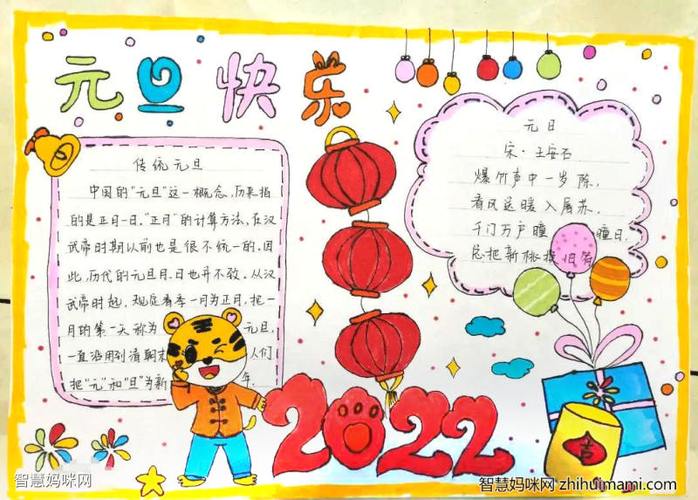 元旦快乐
传统元旦
中国的"元旦"这一概念,历来指
的是正月一日。"正月"的计算方法,在汉
武帝时期以前也是很不统一的。因
此,历代的元旦月、日也并不一致。从汉
武帝时起,规定春季一月为正月,把一
月的第一天称为 元旦,
一直沿用到清朝末 人们
把"元"和"旦"为新 年.
元日
宋·王安石
爆竹声中一岁除,
春风送暖入屠苏.
千门万户瞳 瞳日,
总把新桃换旧符
2022
智慧妈咪网
智慧妈咪网 zhihuimami.com